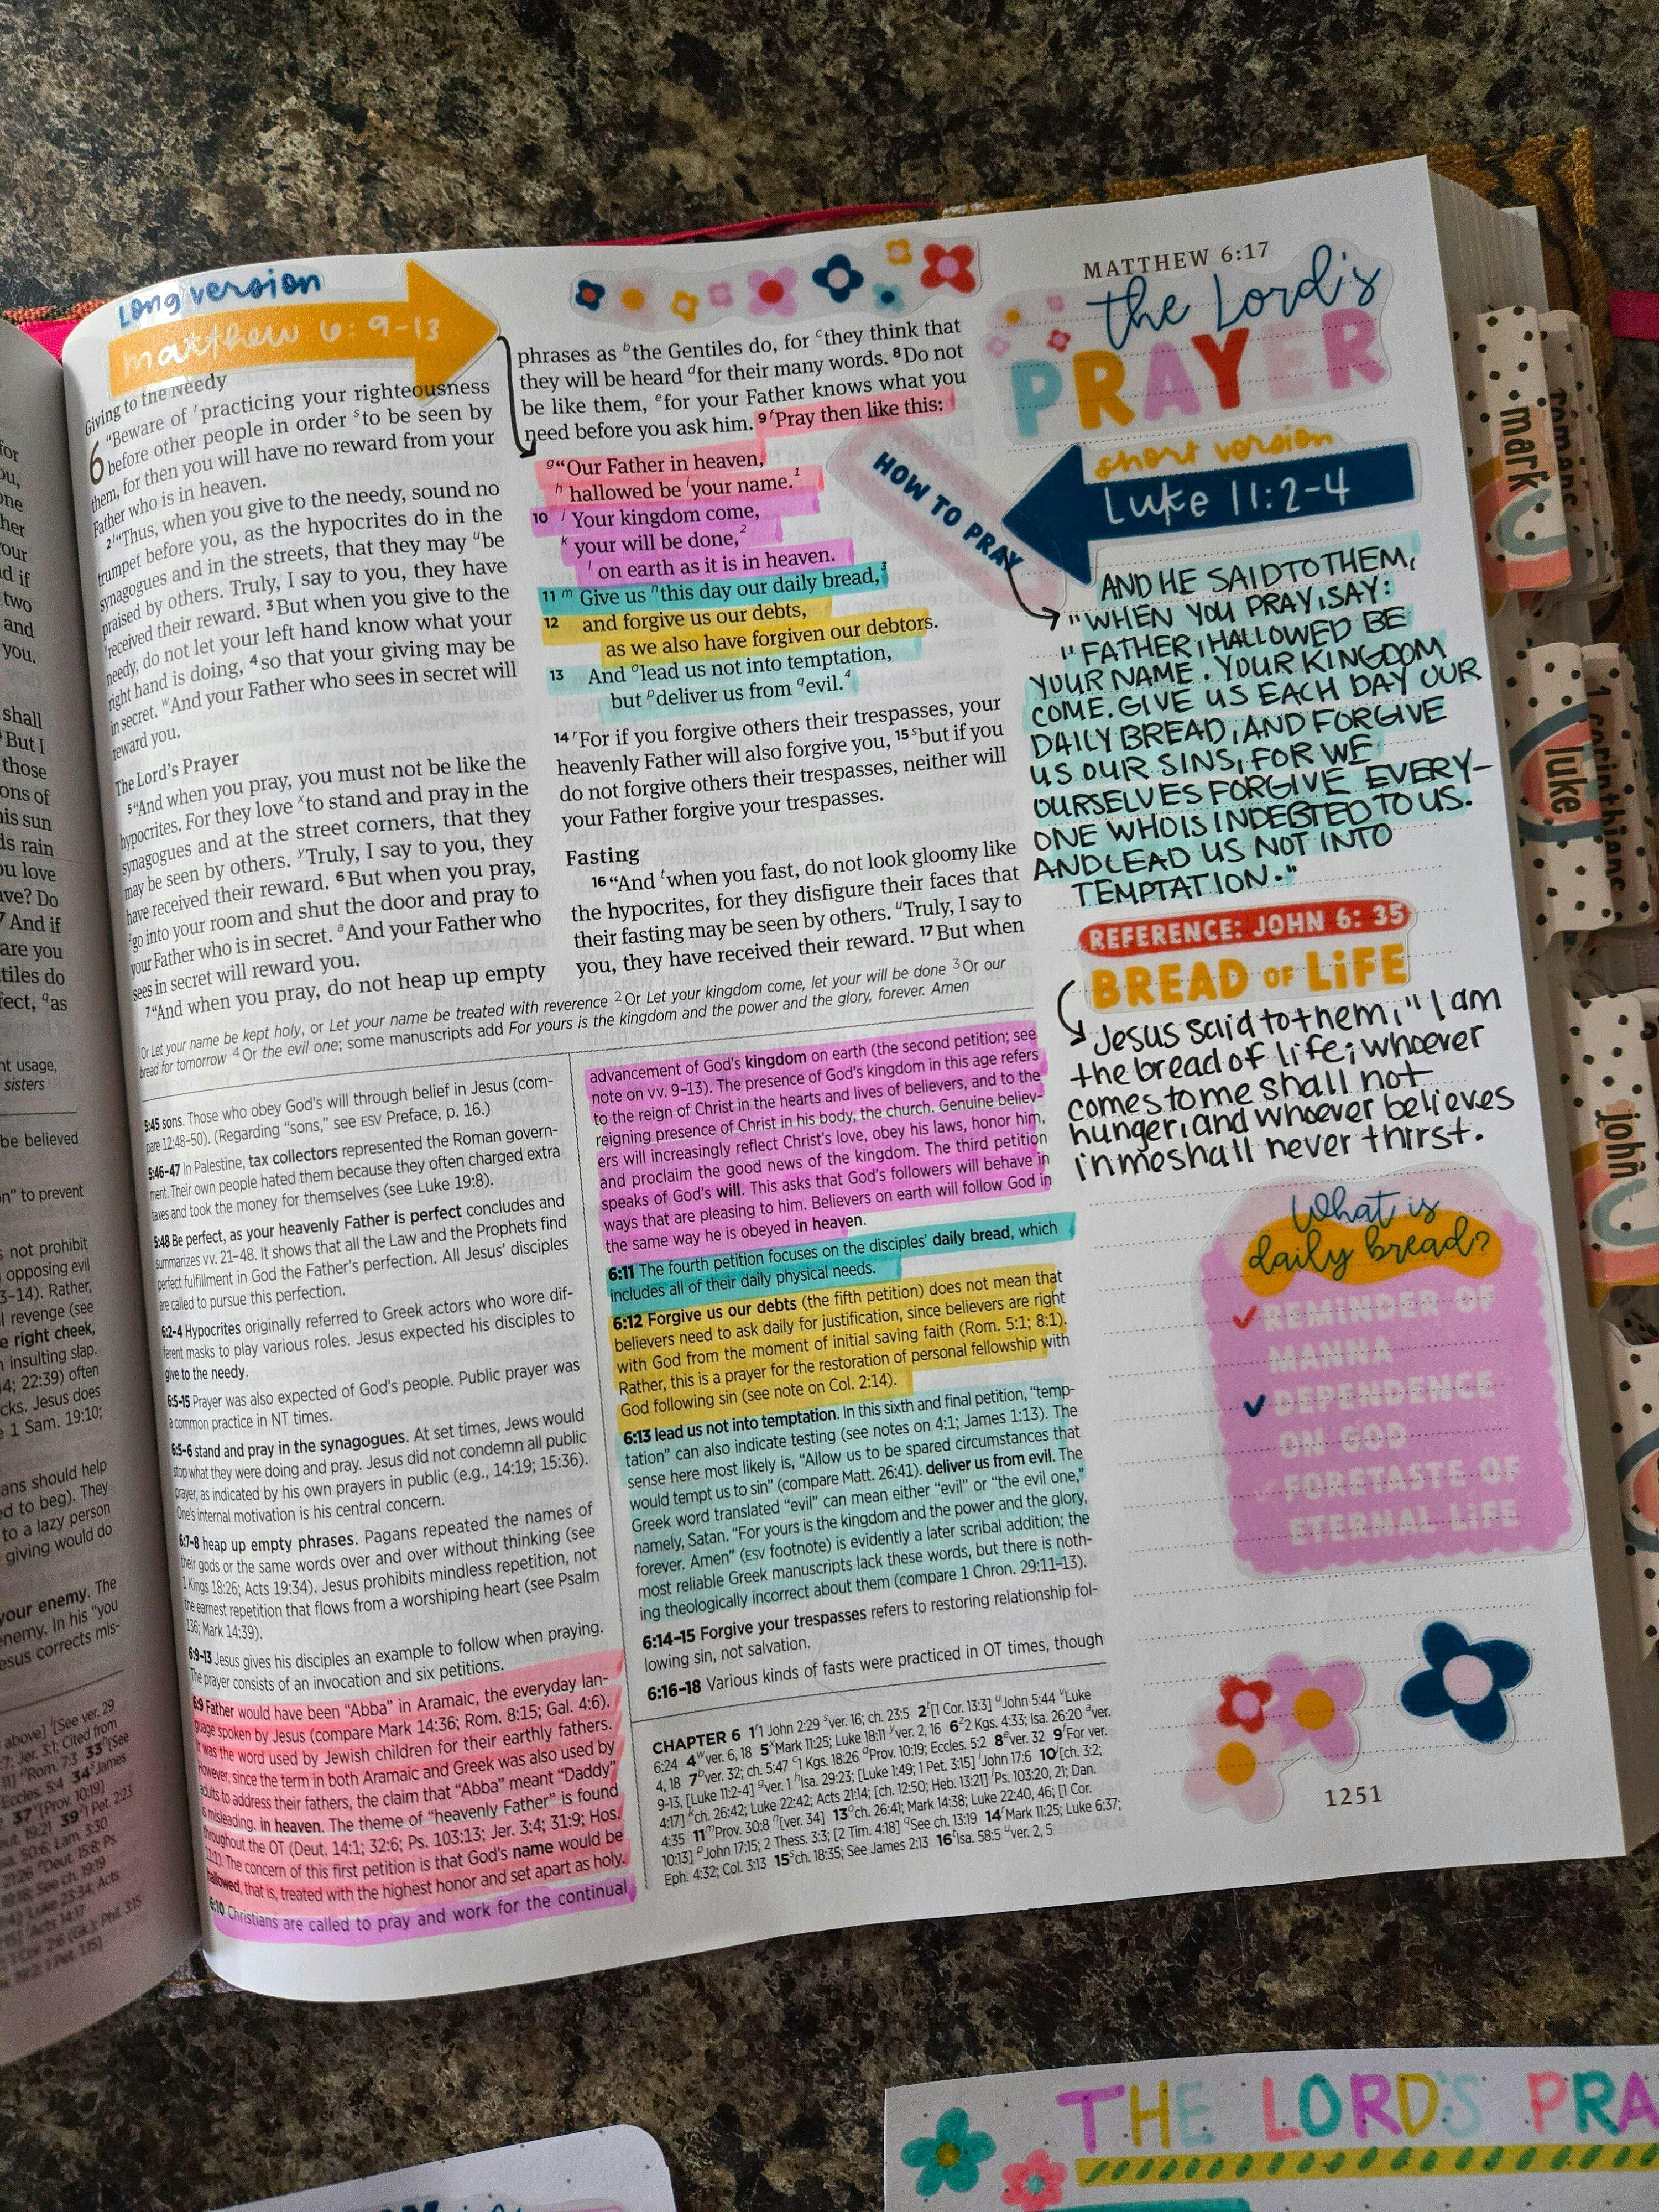 Long version
matthew 6:9-13
Giving to the Needy
6 "Beware of rpracticing your righteousness
before other people in order sto be seen by
them, for then you will have no reward from your
Father who is in heaven.
2t"Thus, when you give to the needy, sound no
trumpet before you, as the hypocrites do in the
synagogues and in the streets, that they may ube
praised by others. Truly, I say to you, they have
vreceived their reward. 3But when you give to the
needy, do not let your left hand know what your
right hand is doing, 4so that your giving may be
in secret. wAnd your Father who sees in secret will
reward you.
The Lord's Prayer
5"And when you pray, you must not be like the
hypocrites. For they love xto stand and pray in the
synagogues and at the street corners, that they
may be seen by others. yTruly, I say to you, they
have received their reward. 6But when you pray,
zgo into your room and shut the door and pray to
your Father who is in secret. aAnd your Father who
sees in secret will reward you.
7"And when you pray, do not heap up empty
phrases as bthe Gentiles do, for cthey think that
they will be heard dfor their many words. 8Do not
be like them, efor your Father knows what you
need before you ask him. 9fPray then like this:
g"Our Father in heaven,
hhallowed be iyour name.1
10 jYour kingdom come,
kyour will be done,2
lon earth as it is in heaven.
11 mGive us nthis day our daily bread,3
12 and forgive us our debts,
as we also have forgiven our debtors.
13 And olead us not into temptation,
but pdeliver us from qevil.4
14rFor if you forgive others their trespasses, your
heavenly Father will also forgive you, 15sbut if you
do not forgive others their trespasses, neither will
your Father forgive your trespasses.
Fasting
16"And twhen you fast, do not look gloomy like
the hypocrites, for they disfigure their faces that
their fasting may be seen by others. uTruly, I say to
you, they have received their reward. 17But when
1Or Let your name be kept holy, or Let your name be treated with reverence 2Or Let your kingdom come, let your will be done 3Or our
bread for tomorrow 4Or the evil one; some manuscripts add For yours is the kingdom and the power and the glory, forever. Amen
5:45 sons. Those who obey God's will through belief in Jesus (com-
pare 12:48-50). (Regarding "sons," see ESV Preface, p. 16.)
5:46-47 In Palestine, tax collectors represented the Roman govern-
ment. Their own people hated them because they often charged extra
taxes and took the money for themselves (see Luke 19:8).
5:48 Be perfect, as your heavenly Father is perfect concludes and
summarizes vv. 21-48. It shows that all the Law and the Prophets find
perfect fulfillment in God the Father's perfection. All Jesus' disciples
are called to pursue this perfection.
6:2-4 Hypocrites originally referred to Greek actors who wore dif-
ferent masks to play various roles. Jesus expected his disciples to
give to the needy.
6:5-15 Prayer was also expected of God's people. Public prayer was
a common practice in NT times.
6:5-6 stand and pray in the synagogues. At set times, Jews would
stop what they were doing and pray. Jesus did not condemn all public
prayer, as indicated by his own prayers in public (e.g., 14:19; 15:36).
One's internal motivation is his central concern.
6:7-8 heap up empty phrases. Pagans repeated the names of
their gods or the same words over and over without thinking (see
1 Kings 18:26; Acts 19:34). Jesus prohibits mindless repetition, not
the earnest repetition that flows from a worshiping heart (see Psalm
136; Mark 14:39).
6:9-13 Jesus gives his disciples an example to follow when praying.
The prayer consists of an invocation and six petitions.
6:9 Father would have been "Abba" in Aramaic, the everyday lan-
guage spoken by Jesus (compare Mark 14:36; Rom. 8:15; Gal. 4:6).
It was the word used by Jewish children for their earthly fathers.
However, since the term in both Aramaic and Greek was also used by
adults to address their fathers, the claim that "Abba" meant "Daddy"
is misleading. in heaven. The theme of "heavenly Father" is found
throughout the OT (Deut. 14:1; 32:6; Ps. 103:13; Jer. 3:4; 31:9; Hos.
11:1). The concern of this first petition is that God's name would be
hallowed, that is, treated with the highest honor and set apart as holy.
6:10 Christians are called to pray and work for the continual
advancement of God's kingdom on earth (the second petition; see
note on vv. 9-13). The presence of God's kingdom in this age refers
to the reign of Christ in the hearts and lives of believers, and to the
reigning presence of Christ in his body, the church. Genuine believ-
ers will increasingly reflect Christ's love, obey his laws, honor him,
and proclaim the good news of the kingdom. The third petition
speaks of God's will. This asks that God's followers will behave in
ways that are pleasing to him. Believers on earth will follow God in
the same way he is obeyed in heaven.
6:11 The fourth petition focuses on the disciples' daily bread, which
includes all of their daily physical needs.
6:12 Forgive us our debts (the fifth petition) does not mean that
believers need to ask daily for justification, since believers are right
with God from the moment of initial saving faith (Rom. 5:1; 8:1).
Rather, this is a prayer for the restoration of personal fellowship with
God following sin (see note on Col. 2:14).
6:13 lead us not into temptation. In this sixth and final petition, "temp-
tation" can also indicate testing (see notes on 4:1; James 1:13). The
sense here most likely is, "Allow us to be spared circumstances that
would tempt us to sin" (compare Matt. 26:41). deliver us from evil. The
Greek word translated "evil" can mean either "evil" or "the evil one,"
namely, Satan. "For yours is the kingdom and the power and the glory,
forever. Amen" (ESV footnote) is evidently a later scribal addition; the
most reliable Greek manuscripts lack these words, but there is noth-
ing theologically incorrect about them (compare 1 Chron. 29:11-13).
6:14-15 Forgive your trespasses refers to restoring relationship fol-
lowing sin, not salvation.
6:16-18 Various kinds of fasts were practiced in OT times, though
CHAPTER 6 1r1 John 2:29 sver. 16; ch. 23:5 2t[1 Cor. 13:3] uJohn 5:44 vLuke
6:24 4wver. 6, 18 5xMark 11:25; Luke 18:11 yver. 2, 16 6z2 Kgs. 4:33; Isa. 26:20 aver.
4, 18 7bver. 32; ch. 5:47 c1 Kgs. 18:26 dProv. 10:19; Eccles. 5:2 8ever. 32 9fFor ver.
9-13, [Luke 11:2-4] gver. 1 hIsa. 29:23; [Luke 1:49; 1 Pet. 3:15] iJohn 17:6 10j[ch. 3:2;
4:17] kch. 26:42; Luke 22:42; Acts 21:14; [ch. 12:50; Heb. 13:21] lPs. 103:20, 21; Dan.
4:35 11mProv. 30:8 n[ver. 34] 13och. 26:41; Mark 14:38; Luke 22:40, 46; [1 Cor.
10:13] pJohn 17:15; 2 Thess. 3:3; [2 Tim. 4:18] qSee ch. 13:19 14rMark 11:25; Luke 6:37;
Eph. 4:32; Col. 3:13 15sch. 18:35; See James 2:13 16tIsa. 58:5 uver. 2, 5
MATTHEW 6:17
the Lord's
PRAYER
short version
Luke 11:2-4
HOW TO PRAY
AND HE SAID TO THEM,
"WHEN YOU PRAY, SAY:
"FATHER, HALLOWED BE
YOUR NAME. YOUR KINGDOM
COME. GIVE US EACH DAY OUR
DAILY BREAD, AND FORGIVE
US OUR SINS, FOR WE
OURSELVES FORGIVE EVERY-
ONE WHO IS INDEBTED TO US.
AND LEAD US NOT INTO
TEMPTATION."
REFERENCE: JOHN 6:35
BREAD OF LiFE
Jesus said to them, "I am
the bread of life; whoever
comes to me shall not
hunger, and whoever believes
in me shall never thirst.
What is
daily bread?
REMINDER OF
MANNA
DEPENDENCE
ON GOD
FORETASTE OF
ETERNAL LiFE
1251
mark
romans
luke
1 corinthians
john
THE LORD'S PRA